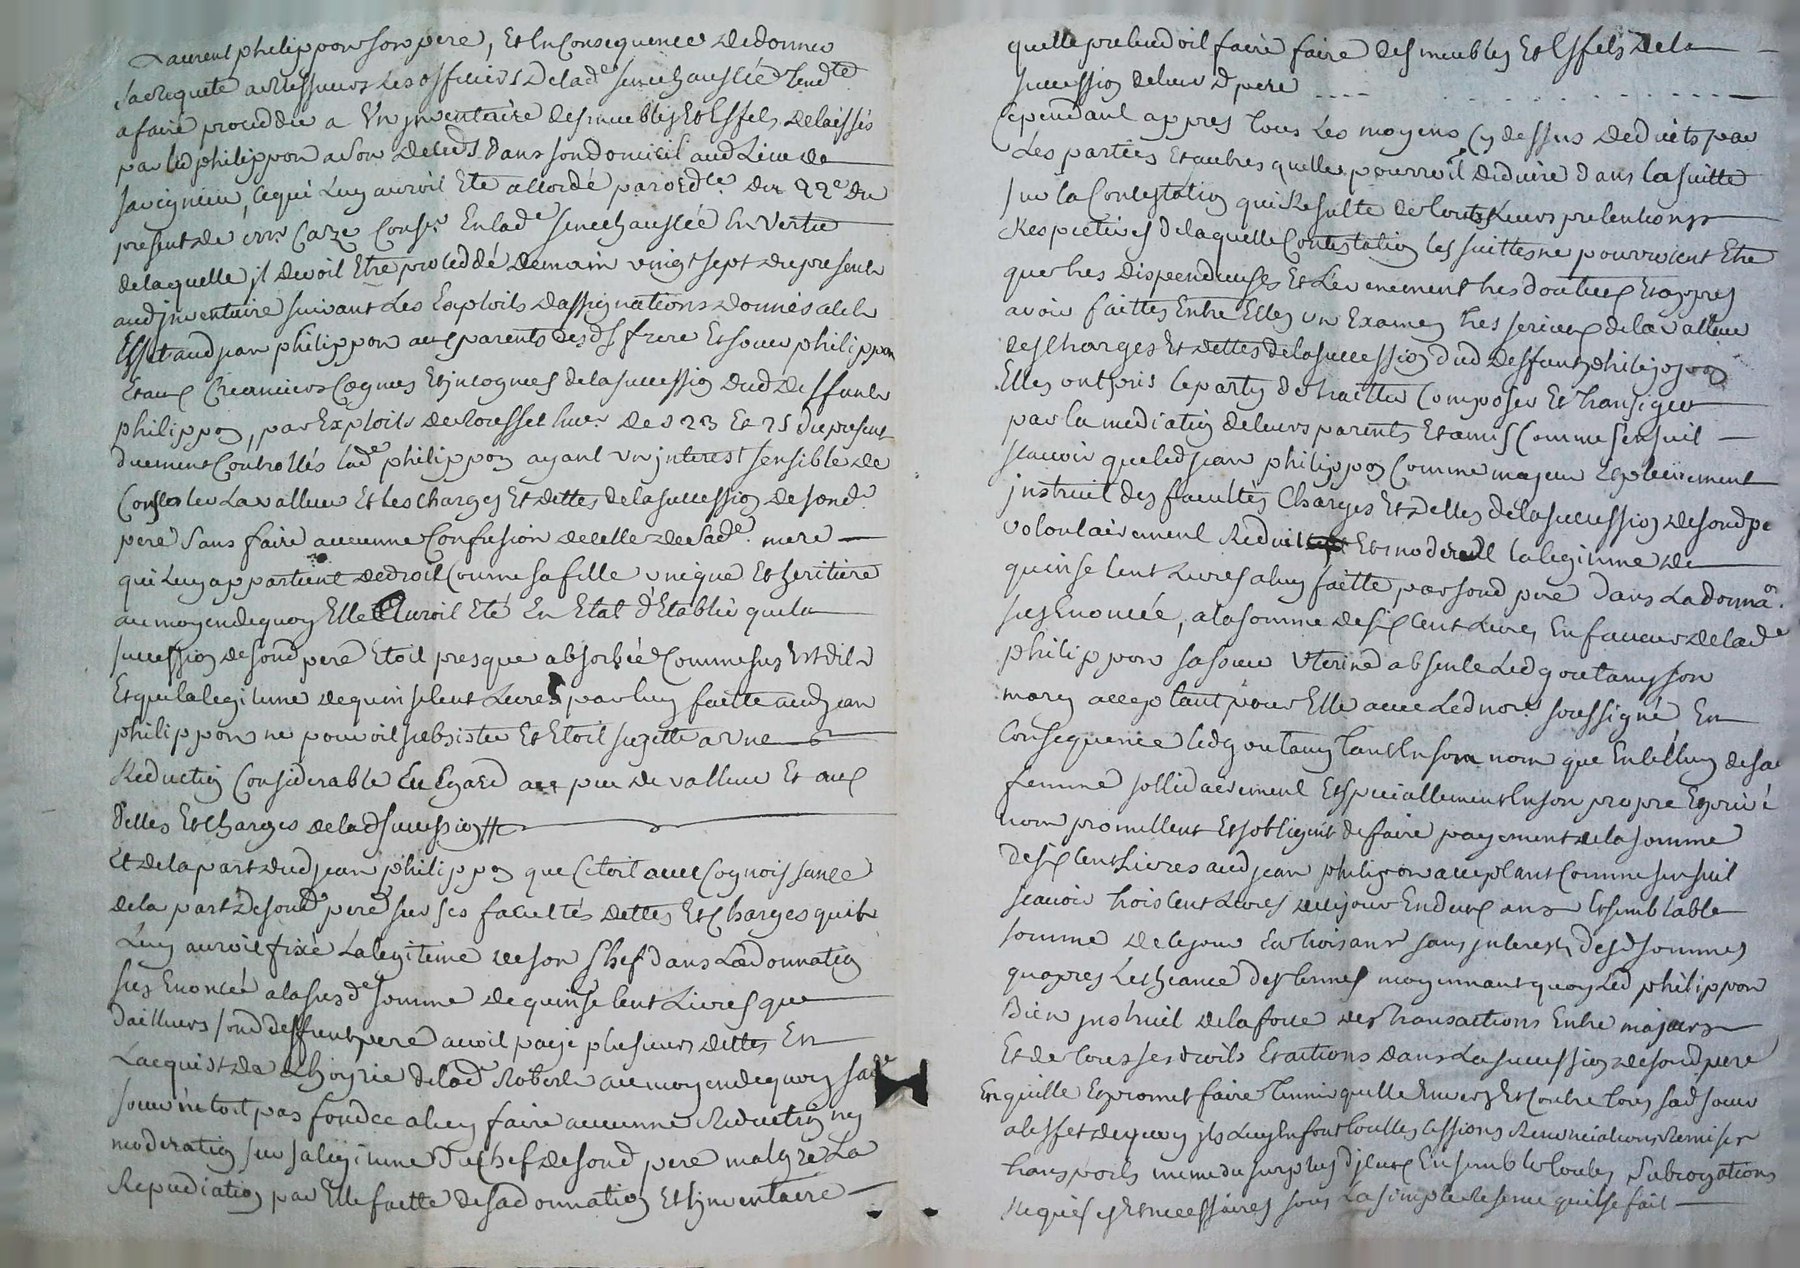 Laurent philippon son pere, Et En Consequence de donner
sa Requete a Messieurs Les officiers De lade senechaussée tendte
a faire proceddé a Un jnventaire des meubles Et Effets delaissés
par led philippon a son deceds Dans son domicil aud Lieu de
savignieu, Ce qui Luy auroit Eté accordé par ordce du 22e du
present de mr Caze Conser En lade senechaussée En vertu
de laquelle jl devoit Etre proceddé demain vingt sept du present
aud jnventaire suivant Les Exploits d'assignations donnés a cet
Effet aud jean philippon aux parents desds frere Et soeur philippon
Et aux Creanciers Cognus Et jncognus de la succession dud deffunt
philippon, par Exploits de Rousset huer des 23 Et 25 du present
duement Controllés lade philippon ayant un jnterest sensible de
Consster La valleur Et les charges Et dettes de la succession de sond
pere sans faire aucunne Confusion de celle de sade mere
qui Luy appartient de droit Comme sa fille unique Et heritiere
au moyen de quoy Elle Auroit Eté En Etat d'Etablir que la
succession de sond pere Etoit presque absorbée Comme sus Est dit
Et que la legitime de quinse cent Livres par luy faitte aud jean
philippon ne pouvoit subsister Et Etoit sujette a une
Reduction Considerable Eu Egard au peu de valleur Et aux
dettes Et charges de lad succession
Et de la part dud jean philippon que C'etoit avec Cognoissance
de la part de sond pere sur ses facultés dettes Et Charges qu'il
Luy auroit fixé La legitime de son Chef dans La donnation
sus Enoncée a la susde somme de quinse cent Livres que
d'ailleurs sond deffunt pere avoit payé plusieurs dettes En
L'acquit de L'hoyrie de lade Robert au moyen de quoy sade
soeur n'etoit pas fondée a luy faire aucunne Reduction ny
moderation sur sa legitime du Chef de sond pere malgré La
Repudiation par Elle faitte de sa donnation Et jnventaire
qu'elle pretendoit faire faire des meubles Et Effets de la
succession de leur d pere
Cependant appres tous Les moyens Cy dessus deduits par
Les parties Et autres quelles pourroit deduire dans la suitte
sur la Contestation qui Resulte de toutes Leurs pretentions
Respectives de laquelle Contestation les suittes ne pourroient Etre
que tres dispendieuses Et L'evenement tres douteux Et appres
avoir faittes Entre Elles un Examen tres serieux de la valleur
des Charges Et dettes de la succession dud deffunt philippon
Elles ont pris le party de traitter Composer Et transiger
par la mediation de leurs parents Et amis Comme s'ensuit
scavoir que led jean philippon Comme majeur Et pleinement
jnstruit des facultés Charges Et dettes de la succession de sond pe
volontairement Reduit Et moderé la legitime de
quinse cent Livres a luy faitte par sond pere dans La donnaon
sus Enoncée, a la somme de six cent Livres En faveur de lade
philippon sa soeur Uterine absente Led goutany son
mary acceptant pour Elle avec Led nore soussigné En
Consequence led goutany tant En son nom que En celluy de sa
femme sollidairement Et speciallement En son propre Et privé
nom promettent Et s'obligent de faire payement de la somme
de six cent Livres aud jean philippon acceptant Comme s'ensuit
scavoir trois cent Livres de ce jour En deux ans Et semblable
somme de ce jour En trois ans sans jnterest desd sommes
qu'apres L'echeance des termes moyennant quoy Led philippon
Bien jnstruit de la force des transactions Entre majeurs
Et de tous ses droits Et actions dans La succession de sond pere
En quitte Et promet faire tenir quitte Envers Et Contre tous sad soeur
a l'effet de quoy jls Luy En font touttes cessions Renonciations Remises
transports meme du surplus d'jceux Ensemble toutes subrogations
Requises Et necessaires sous La simple Reserve qu'il se fait